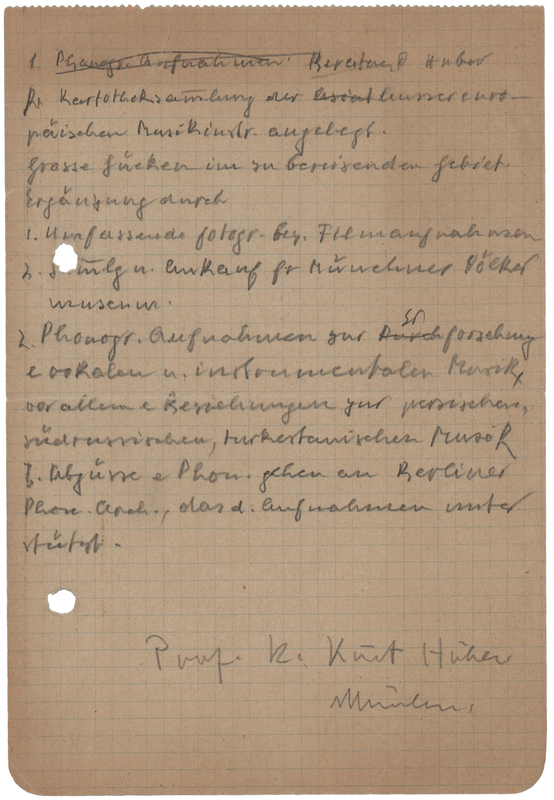 1. Phonogr. Aufnahmen. Huber
Kartotheksammlung der aussereuro-
päischen Musikinstr. angelegt.
Grosse Lücken im zu bereisenden Gebiet.
Ergänzung durch
1. Umfassende fotogr. bez. Filmaufnahmen
2. u. Ankauf fr Münchner Völker
museum.
2. Phonogr. Aufnahmen zur Durch Erforschung
e vokalen u. instrumentalen Musik,
vor allem e Beziehungen zur persischen,
südrussischen, turkestanischen Musik
3. Abgüsse e Phon. gehen an Berliner
Phon. Arch., das d. Aufnahmen unter
stützt.
Prof. Kurt Huber
München.